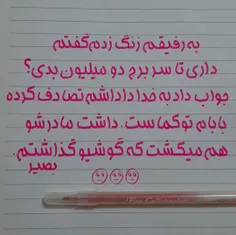 به رفیقم زنگ زدم گفتم
داری تا سر برج دو میلیون بدی؟
جواب داد به خدا داداشم تصادف کرده
بابام تو کماست. داشت مادرشو
هم میکشت که گوشیو گذاشتم.
بصیر